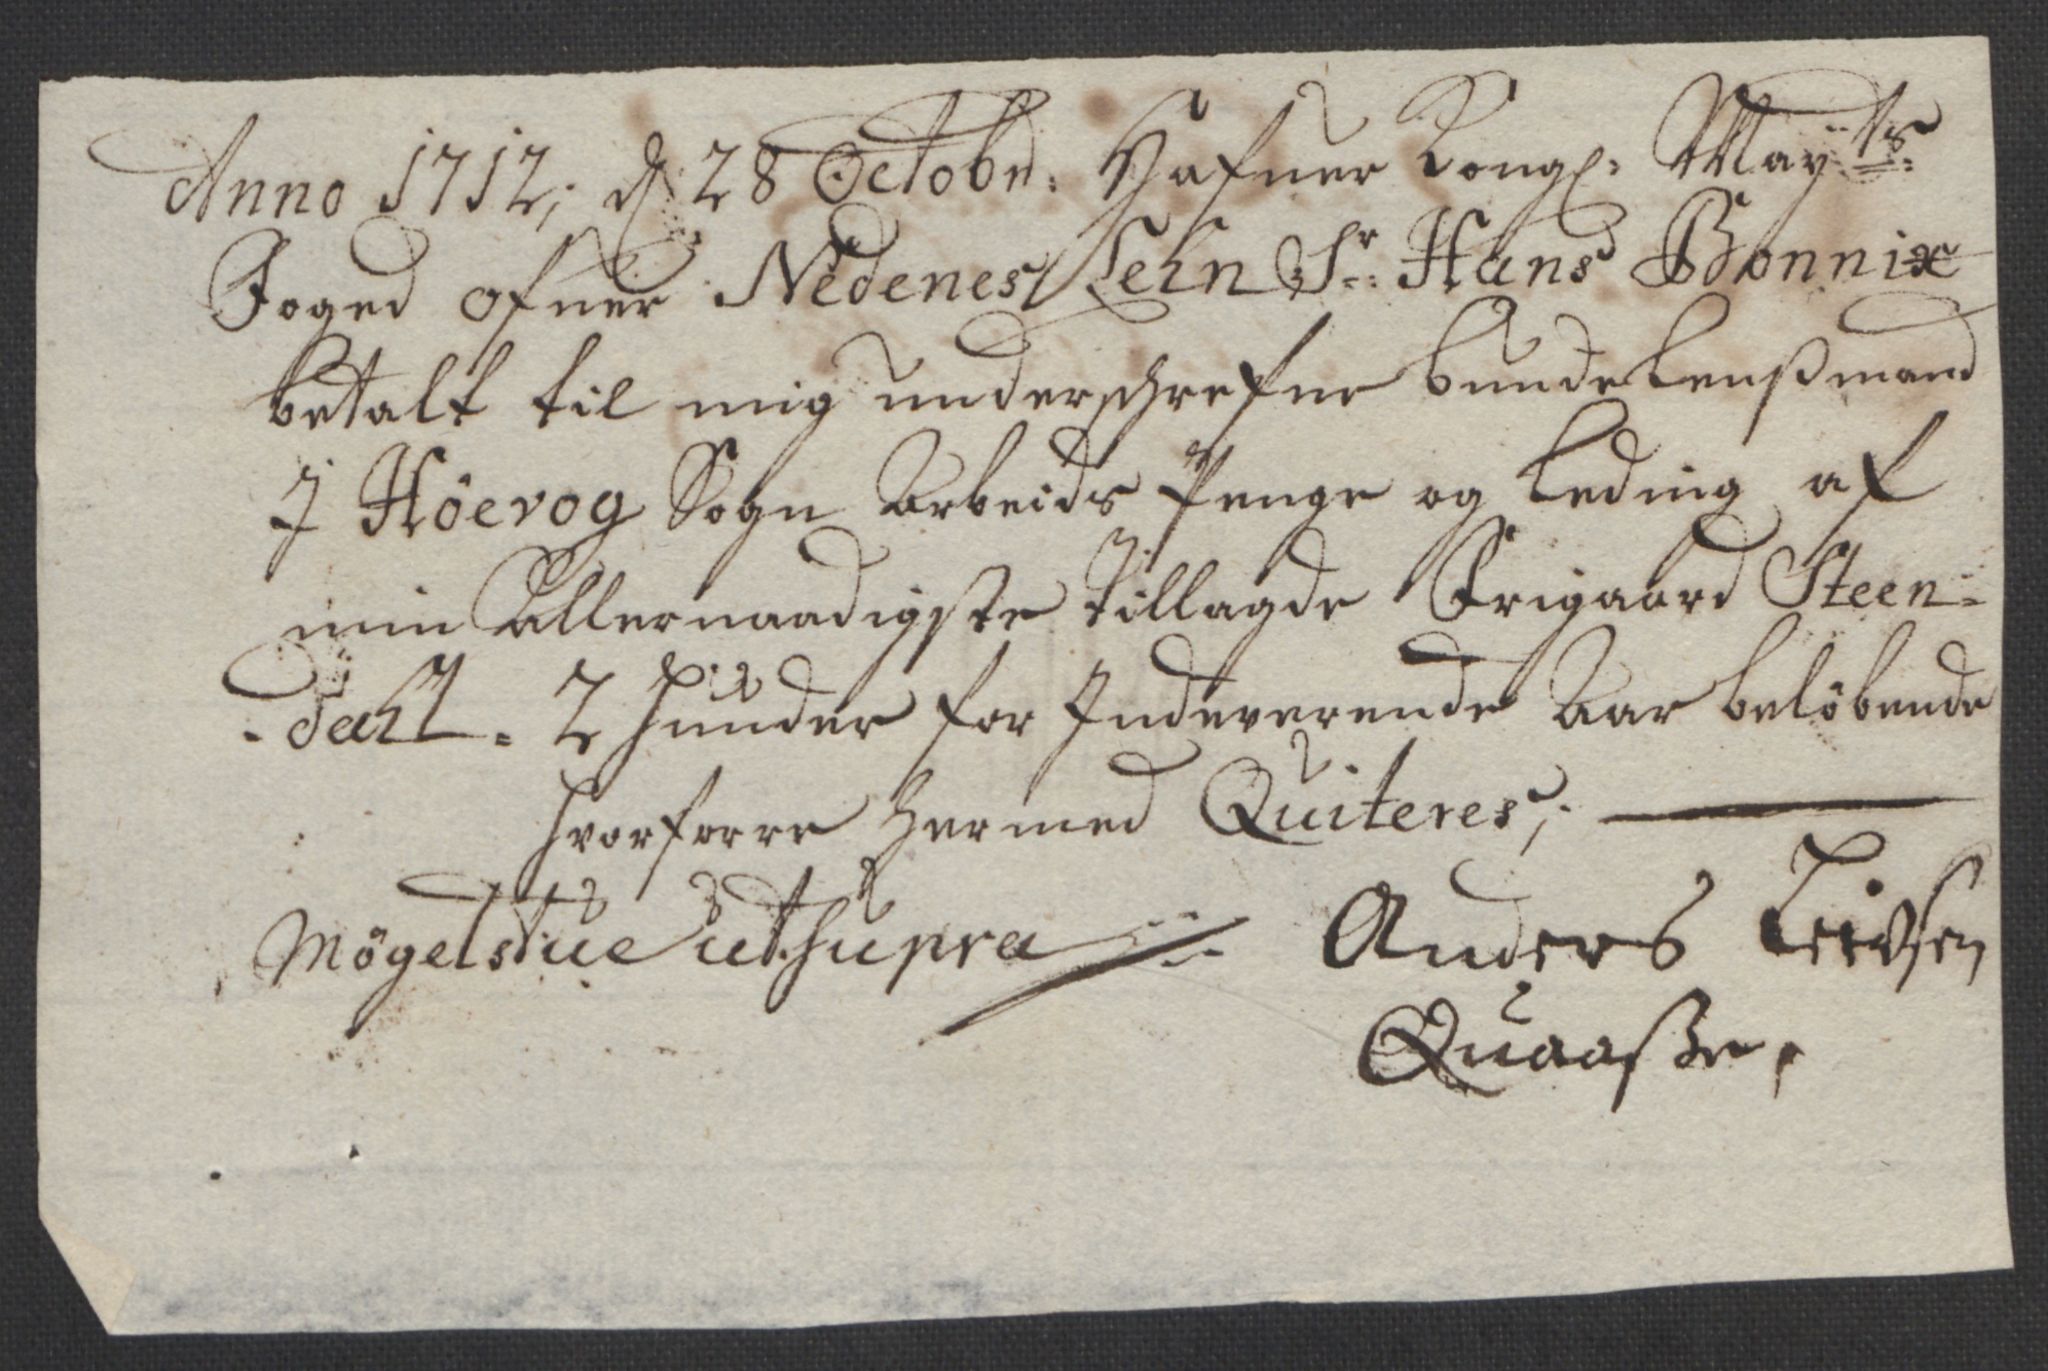 Anno 1712; d. 28 Octobr: Hafuer Kongl: Mayts:
Foged ofuer Nedenes Lehn Sr: Hans Bonnix
betalt til mig underschrefne bunde Lensmand
I Höevog Sogn Arbeids Penge og Leding af
min Allernaadigste tillagde Frigaard Steen-
-dahl - 2 hunder for Indeverende Aar belöbende
hvorforre hermed Quiteres;
Mögelstue ut Supra
Anders Leivsen
Quaasse,